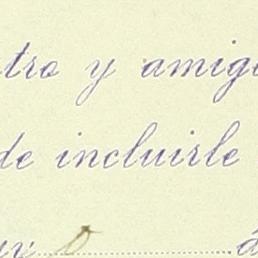 tro y amig
de incluirle